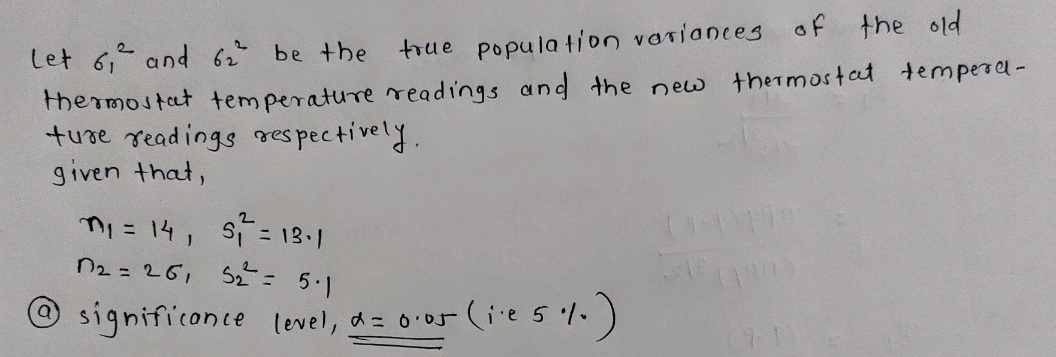 Let σ₁² and σ₂² be the true population variances of the old
thermostat temperature readings and the new thermostat tempera-
ture readings respectively.
given that,
n₁ = 14, s₁² = 13.1
n₂ = 26, s₂² = 5.1
ⓐ significance level, α = 0.05 (i.e 5 %)